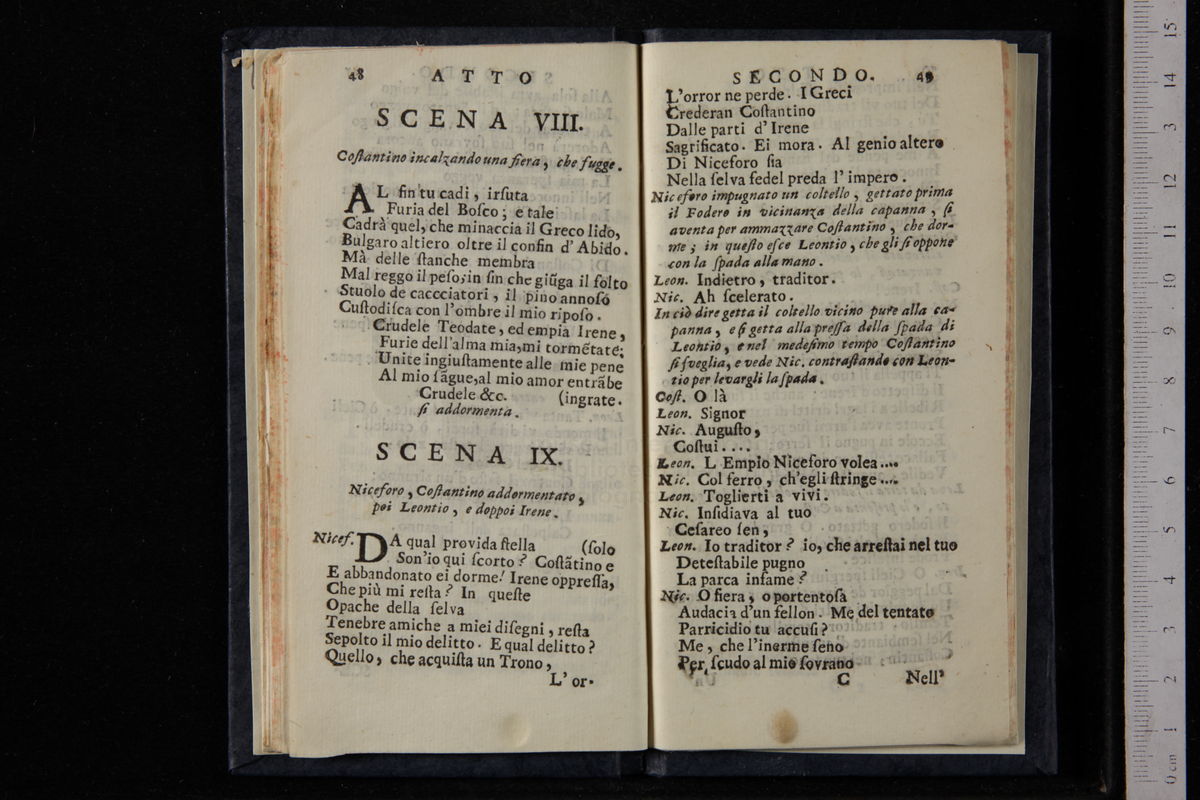 48 ATTO
SCENA VIII.
Coſtantino incalzando una fiera, che fugge.
AL fin tu cadi, irſuta
Furia del Boſco; e tale
Cadrà quel, che minaccia il Greco lido,
Bulgaro altiero oltre il confin d'Abido.
Mà delle ſtanche membra
Mal reggo il peſo; in ſin che giũga il folto
Stuolo de caccciatori, il pino annoſo
Cuſtodiſca con l'ombre il mio ripoſo.
Crudele Teodate, ed empia Irene,
Furie dell'alma mia, mi tormẽtate;
Unite ingiuſtamente alle mie pene
Al mio ſãgue, al mio amor entrãbe
Crudele &c. (ingrate.
ſi addormenta.
SCENA IX.
Niceforo, Coſtantino addormentato,
poi Leontio, e doppoi Irene.
Nicef. DA qual provida ſtella (ſolo
Son'io qui ſcorto? Coſtãtino e
E abbandonato ei dorme! Irene oppreſſa,
Che più mi reſta? In queſte
Opache della ſelva
Tenebre amiche a miei diſegni, reſta
Sepolto il mio delitto. E qual delitto?
Quello, che acquiſta un Trono,
L'or-
SECONDO. 49
L'orror ne perde. I Greci
Crederan Coſtantino
Dalle parti d'Irene
Sagrificato. Ei mora. Al genio altero
Di Niceforo ſia
Nella ſelva fedel preda l'impero.
Niceforo impugnato un coltello, gettato prima
il Fodero in vicinanza della capanna, ſi
aventa per ammazzare Coſtantino, che dor-
me; in queſto eſce Leontio, che gli ſi oppone
con la ſpada alla mano.
Leon. Indietro, traditor.
Nic. Ah ſcelerato.
In ciò dire getta il coltello vicino pure alla ca-
panna, e ſi getta alla preſſa della ſpada di
Leontio, e nel medeſimo tempo Coſtantino
ſi ſveglia, e vede Nic. contraſtando con Leon-
tio per levargli la ſpada.
Coſt. O là
Leon. Signor
Nic. Auguſto,
Coſtui....
Leon. L Empio Niceforo volea....
Nic. Col ferro, ch'egli ſtringe....
Leon. Toglierti a vivi.
Nic. Inſidiava al tuo
Ceſareo ſen,
Leon. Io traditor? io, che arreſtai nel tuo
Deteſtabile pugno
La parca infame?
Nic. O fiera, o portentoſa
Audacia d'un fellon. Me del tentato
Parricidio tu accuſi?
Me, che l'inerme ſeno
Per ſcudo al mio ſovrano
C Nell'